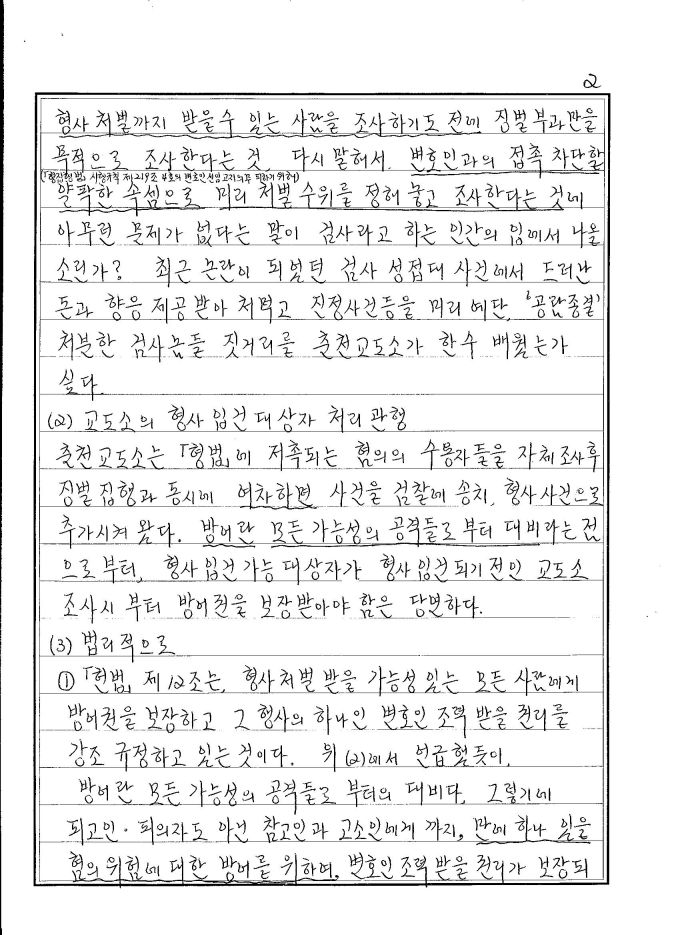 2
형사 처벌까지 받을 수 있는 사람을 조사하기도 전에 징벌부과만을
목적으로 조사한다는 것, 다시 말혀서, 변호인과의 접촉 차단할
(「형집헌법」시행규칙 제219조 4호의 변호인선임고지의무 피하기 위혀)
얄팍한 속셈으로 미리 처벌 수위를 정혀 놓고 조사한다는 것에
아무런 문제가 없다는 말이 검사라고 하는 인간의 입에서 나올
소린가? 최근 논란이 되었던 검사 성접대 사건에서 드러난
돈과 향응 제공받아 처먹고 진정사건등을 미리 예단, '공람종결'
처분한 검사놈들 짓거리를 춘천교도소가 한수 배웠는가
싶다.
(2) 교도소의 형사입건대상자 처리관행
춘천교도소는 「형법」에 저촉되는 혐의의 수용자들을 자체조사후
징벌집행과 동시에 여차하면 사건을 검찰에 송치, 형사사건으로
추가시켜 왔다. 방어란 모든 가능성의 공격들로 부터 대비라는 점
으로부터, 형사입건 가능 대상자가 형사입건되기 전인 교도소
조사시 부터 방어권을 보장받아야 함은 당연하다.
(3) 법리적으로
① 「헌법」 제12조는, 형사처벌 받을 가능성 있는 모든 사람에게
방어권을 보장하고 그 형사의 하나인 변호인 조력 받을 권리를
강조 규정하고 있는것이다. 뒤 (2)에서 언급혔듯이,
방어란 모든 가능성의 공격들로 부터의 대비다. 그렇기에
피고인·피의자도 아닌 참고인과 고소인에게 까지, 만에 하나 있을
혐의 위험에 대한 방어를 위하여, 변호인 조력 받을 권리가 보장되